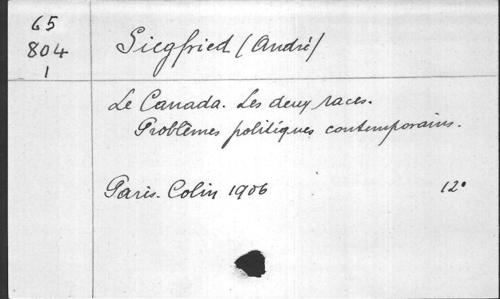 65
804
1
Siegfried (André)
Le Canada. Les deux races.
Problèmes politiques contemporains.
Paris. Colin 1906 12°